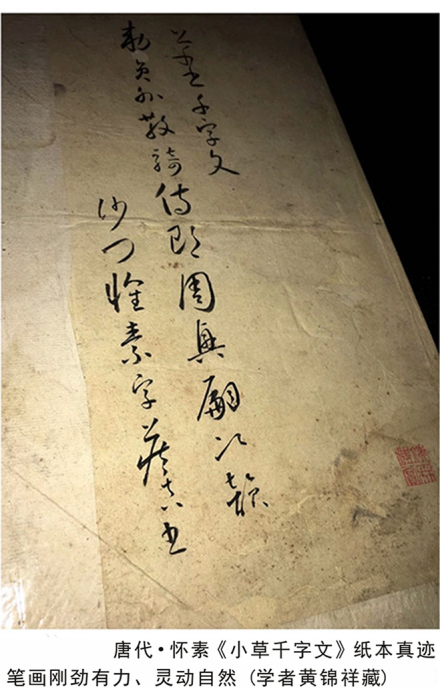 千字文
勅員外散騎侍郎周興嗣次韻
沙門懷素字藏真書
唐代·怀素《小草千字文》纸本真迹
笔画刚劲有力、灵动自然 (学者黄锦祥藏)